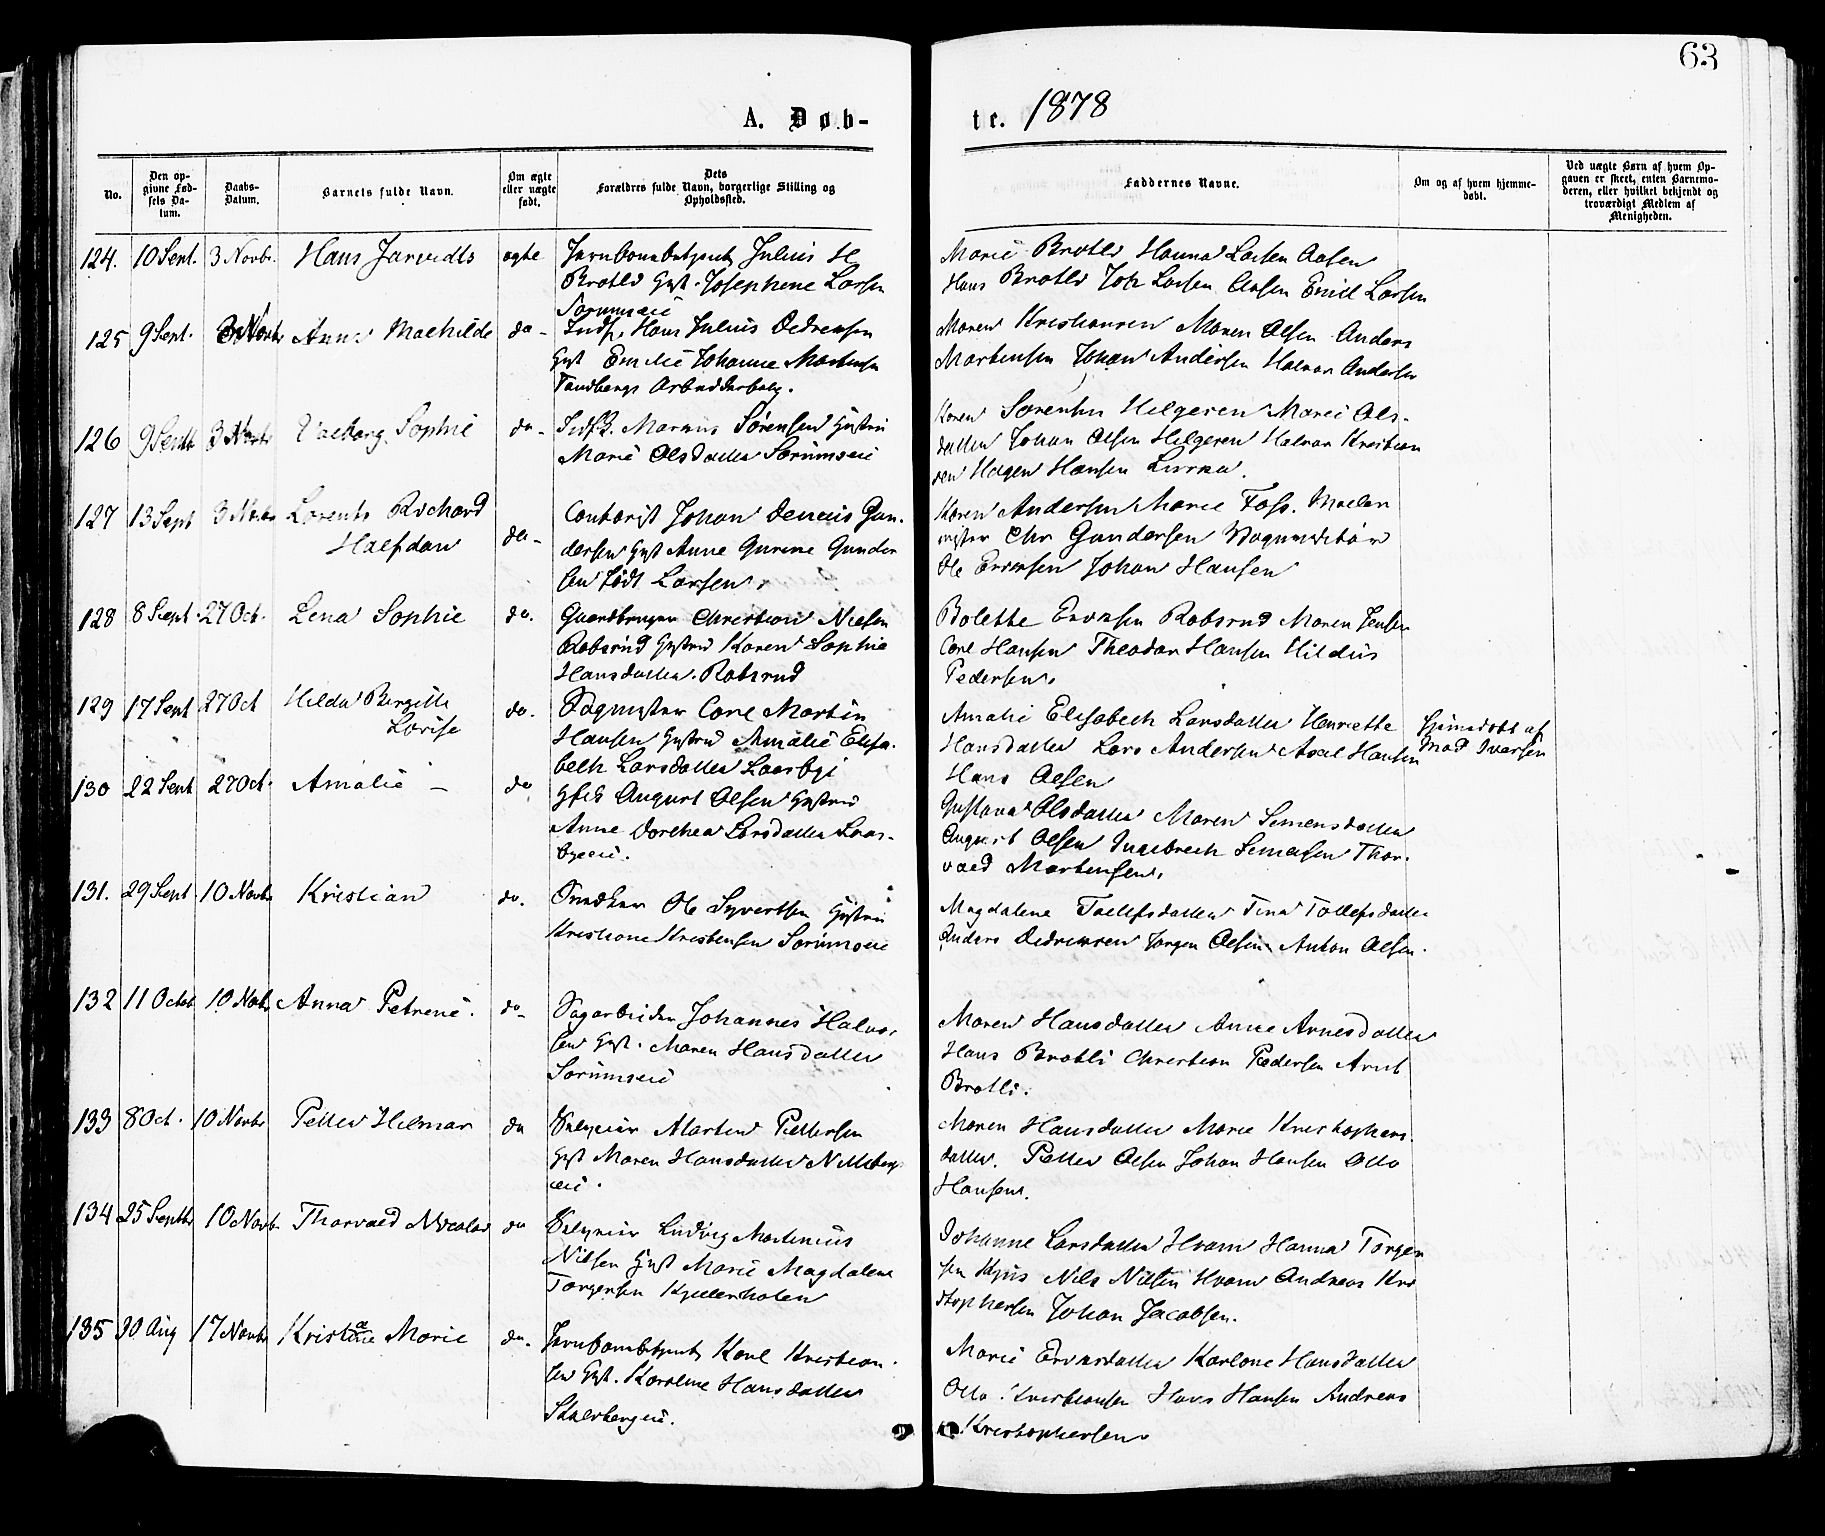 63
A. Døb-
te. 1878
No.
Den op-
givne Fød-
sels Da-
tum.
Daabs-
Datum.
Barnets fulde Navn.
Om ægte
eller uægte
født.
Dets
Forældres fulde Navn, borgerlige Stilling og
Opholdssted.
Faddernes Navne.
Om og af hvem hjemme-
døbt.
Ved uægte Børn af hvem Op-
gaven er skeet, enten Barnemo-
deren, eller hvilket bekjendt og
troværdigt Medlem af
Menigheden.
124. 10 Sept. 3 Novbr. Hans ægte Julius H
Brotli Hust. Josephine Larsen
Sørumseie
Marie Brotli Hanna Larsen Olsen
Hans Brotli Joh Larsen Olsen Emil Larsen
125 9 Sept. 3 Novbr Anna Mathilde do - Indst. Hans Julius Pedersen
Hust Emilie Johanne Mortensen
Tandbergs
Maren Kristiansen Maren Olsen Anders
Mortensen Johan Andersen Halvor Andersen
126 9 Septb 3 Novbr Valborg Sophie do - Markus Sørensen Hustru
Marie Olsdatter Sørumseie
Karen Sørensen Helgeren Marie Ols-
datter Johan Olsen Helgeren Halvor Kristian
sen Hagen Hansen
127 13 Sept 3 Novbr Lorents Richard
Halfdan
do - Contorist Johan Gun-
dersen Hust Anne Gurine Gunder
sen født Larsen.
Karen Andersen Marie Foss.
Chr Gundersen
Ole Evensen Johan Hansen
128 8 Sept. 27 Oct. Lena Sophie do. Gaardbruger Christian Nielsen
Robsrud Hustru Karen Sophie
Hansdatter. Robsrud
Bolette Evensen Robsrud Maren Jensen
Carl Hansen Theodor Hansen Hildus
Pedersen.
129 17 Sept 27 Oct Hilda Bergitte
Lovise
do. Sagmester Carl Martin
Hansen Hustru Amalie Elisa-
beth Larsdatter
Amalie Elisabeth Larsdatter Henriette
Hansdatter Lars Andersen Axel Hansen
Hans Olsen
hjemedøbt af
Mad Iversen
130 22 Sept 27 Oct. Amalie - do August Olsen Hustru
Anne Dorthea Larsdatter
Gustava Olsdatter Maren Simensdatter
August Olsen Ingebreth Simensen Thor-
vald Mortensen.
131. 29 Sept 10 Novbr Kristian do. Snedker Ole Syvertsen Hustru
Kristiane Kristensen Sørumseie
Magdalene Tollefsdatter Tina Tollefsdatter
Anders Pedersen Jørgen Olsen Anton Olsen.
132 11 Octob 10 Novb. Anna Petrine. do - Sagarbeider Johannes Halvor
sen Hust. Maren Hansdatter
Sørumseie
Maren Hansdatter Anne Arnesdatter
Hans Brotli Christian Pedersen Arnt
Brotli.
133 8 Oct. 10 Novbr Petter Hilmar do Selveier Martin Pettersen
Hust Maren Hansdatter
eie.
Maren Hansdatter Marie Kristophers
datter. Petter Olsen Johan Hansen Otto
Hansen.
134 25 Septbr 10 Novb. Thorvald Nicolai do Selveier Ludvig Martinius
Nilsen Hust Marie Magdalene
Torgersen Kjellerholen
Johanne Larsdatter Hvam Hanna Torger
sen Kjus Nils Nilsen Hvam Andreas Kri
stophersen Johan Jacobsen.
135 30 Aug 17 Novbr Kristine Marie do. Karl Kristian-
sen Hust. Karoline Hansdatter
Skalbergeie.
Marie Evensdatter Karline Hansdatter
Otto Kristiansen Hans Hansen Andreas
Kristophersen.